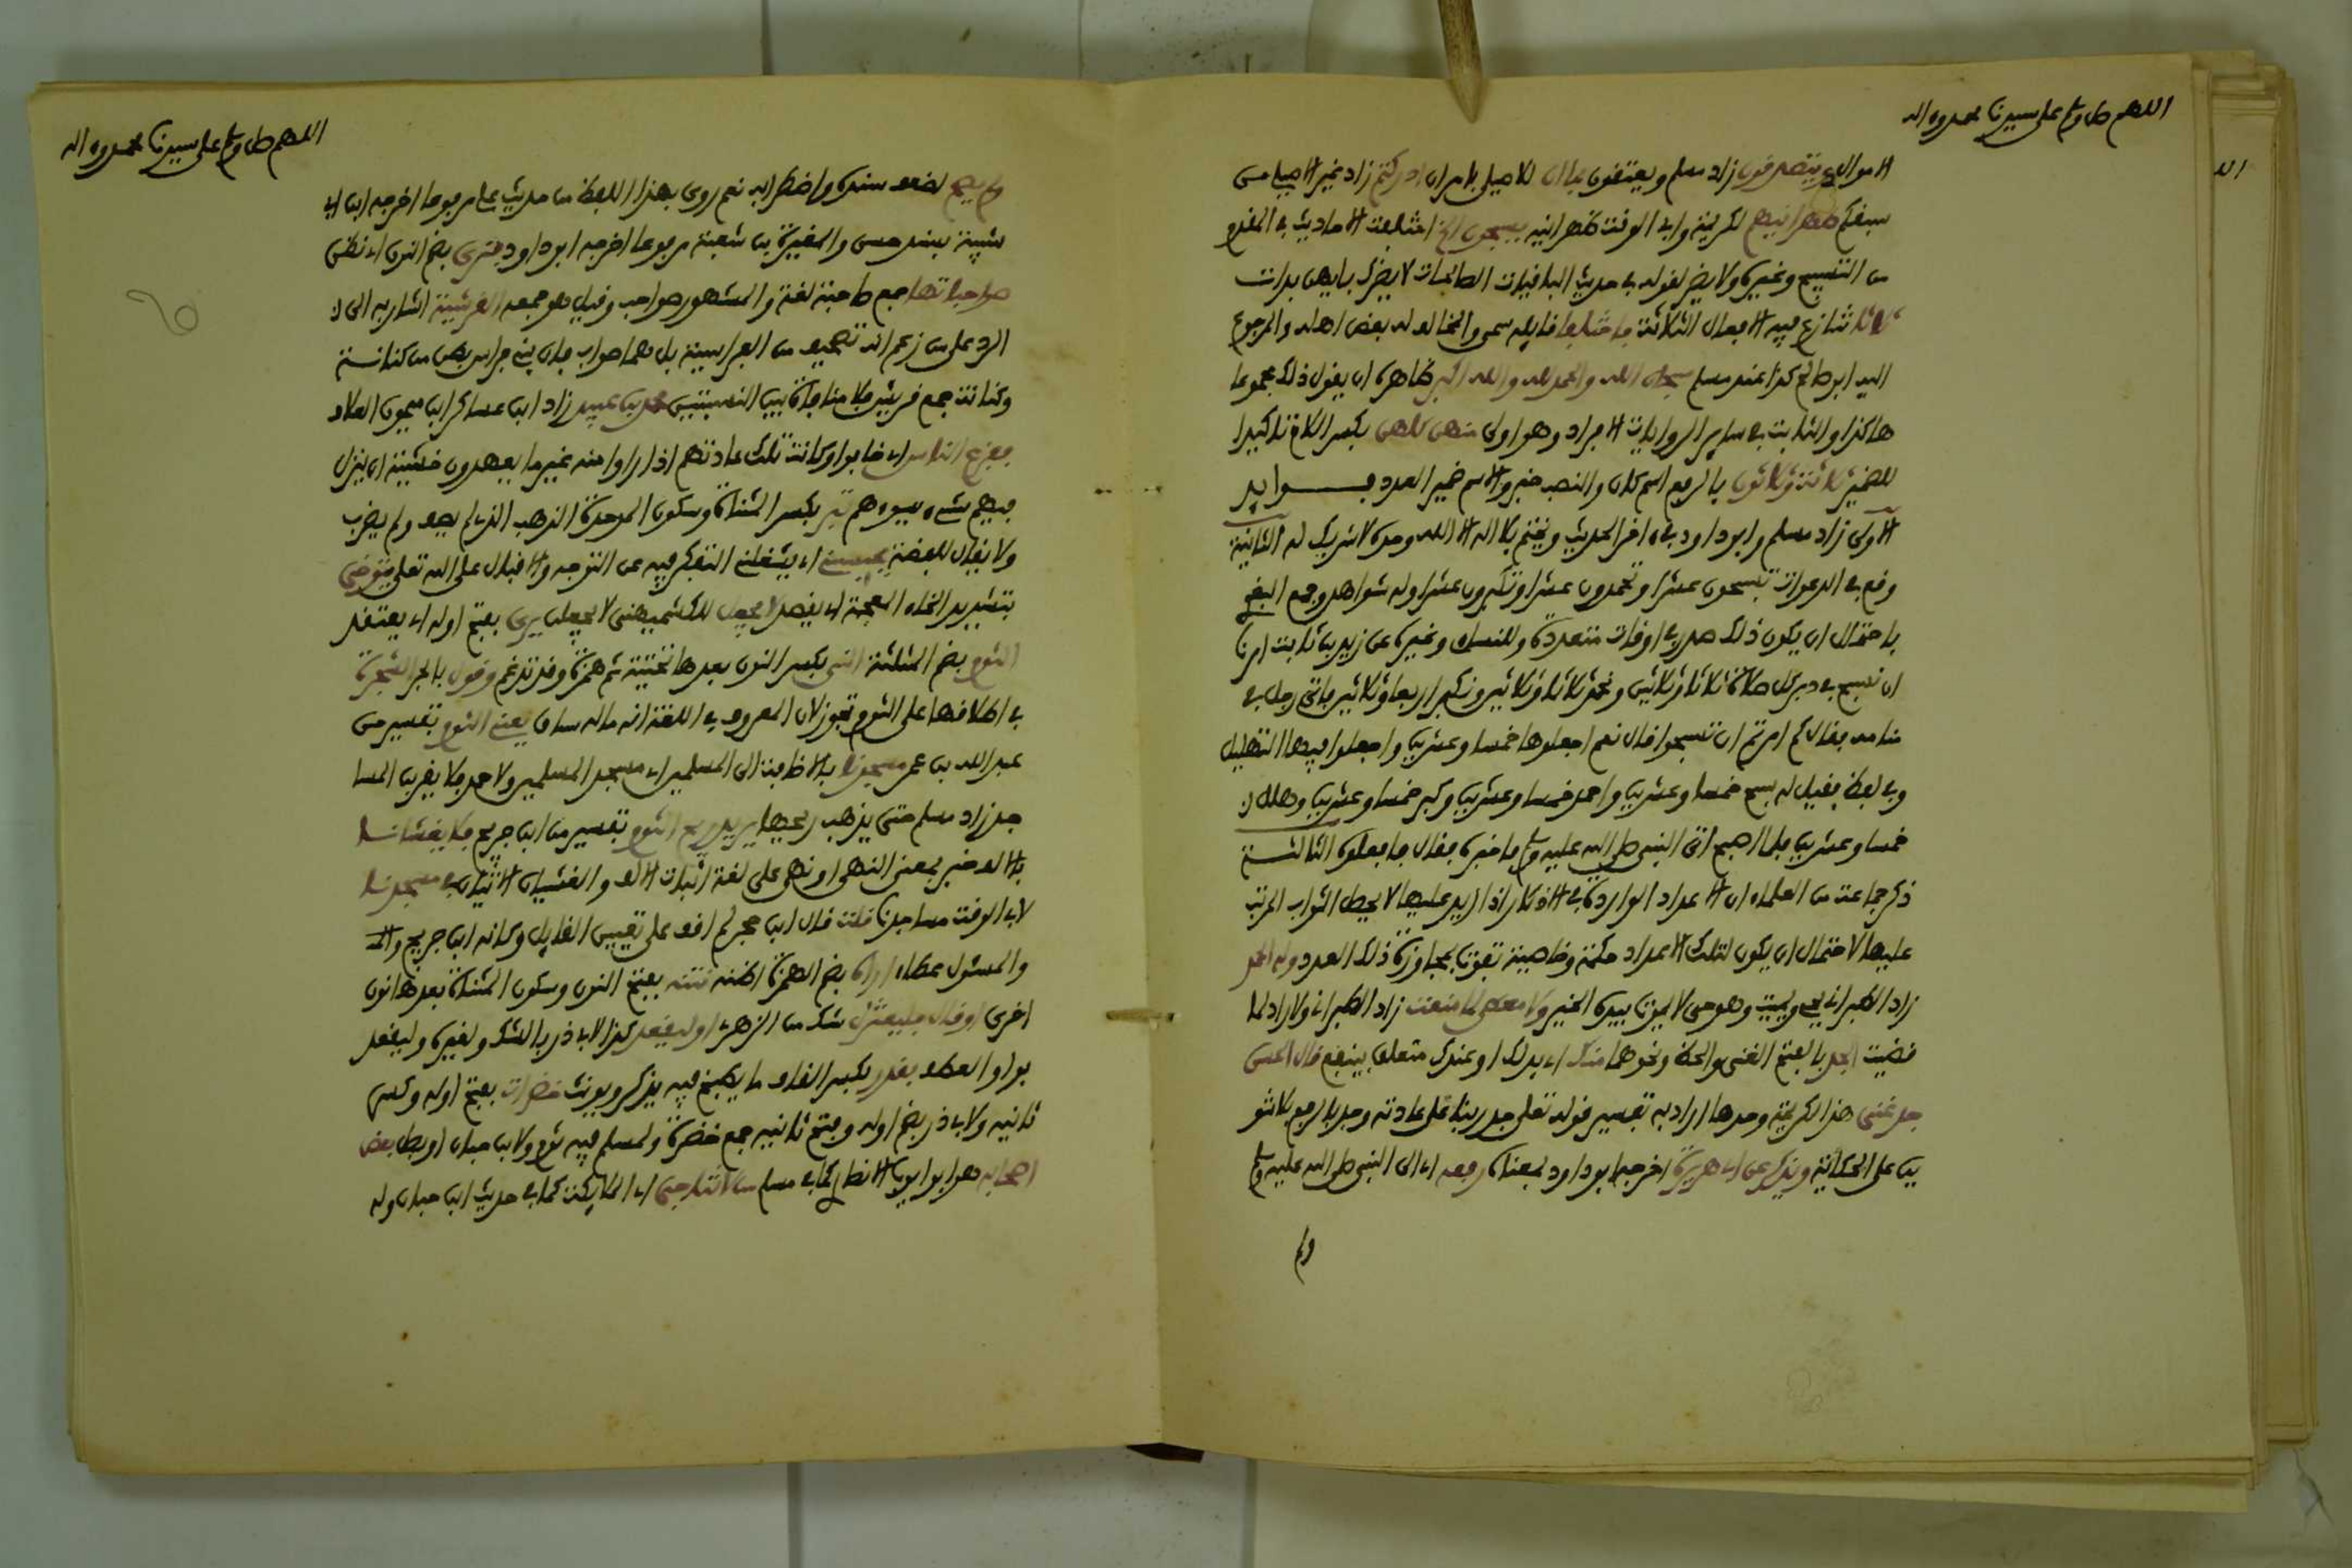 اللهم صل وسلم على سيدنا محمد وءاله
الاموال يتصدقون زاد مسلم ويعتقون بما ان للاصيلي بامر ان ادركتم زاد غير الاصيلي من
سبقكم ظهرانيهم لكريمة وابي الوقت ظهرانيه يسبحون الخ اختلفت الاحاديث في المقدم
من التسبيح وغيره ولا يضر لقوله في حديث الباقيات الصالحات لا يضرك بايهن بدات
ثلاثا تنازع فيه الافعال الثلاثة فاختلفنا قايله سمي والمخالف له بعض اهله والمرجوع
اليه ابو صالح كذا عند مسلم سبحان الله والحمد لله والله اكبر ظاهره ان يقول ذلك مجموعا
هاكذا والثابت في ساير الروايات الافراد وهو اولى منهن كلهن بكسر اللام تاكيدا
للضمير ثلاثة وثلاثون بالرفع اسم كان والنصب خبر والاسم ضمير العدد فوايد
الاولى زاد مسلم وابو داود في ءاخر الحديث ويختم بلا اله الا الله وحده لا شريك له الثانية
وقع في الدعوات تسبحون عشرا وتحمدون عشرا وتكبرون عشرا وله شواهد وجمع البغوي
باحتمال ان يكون ذلك صدر في اوقات متعددة وللنساءي وغيره عن زيد بن ثابت امرنا
ان نسبح في دبر كل صلاة ثلاثا وثلاثين ونحمد ثلاثا وثلاثين ونكبر اربعا وثلاثين فاتى رجل في
منامه فقال كم امرتم ان تسبحوا قال نعم اجعلوها خمسا وعشرين واجعلوا فيها التهليل
وفي لفظ فقيل له سبح خمسا وعشرين واحمد خمسا وعشرين وكبر خمسا وعشرين وهلل
خمسا وعشرين فلما اصبح اتى النبي صلى الله عليه وسلم فاخبره فقال فافعلوه الثالثة
ذكر جماعة من العلماء ان الاعداد الواردة في الاذكار اذا زيد عليها لا يحصل الثواب المرتب
عليها لاحتمال ان يكون لتلك الاعداد حكمة وخاصية تفوت بمجاوزة ذلك العدد وله الحمد
زاد الطبراني يحي ويميت وهو حي لا يموت بيده الخير ولا معطي لما منعت زاد الطبراني ولا راد لما
قضيت الجد بالفتح الغنى والحظ ونحوهما منك اي بدلك او عندك متعلق بينفع قال الحسن
جد غنى هذا لكريمة وحدها اراد به تفسير قوله تعلى جد ربنا على عادته وجد بالرفع بلا تنو
ين على الحكاية ويذكر عن ابي هريرة اخرجه ابو داود بمعناه رفعه اي الى النبي صلى الله عليه وسلم
ولم
اللهم صل وسلم على سيدنا محمد وءاله
ولم يصح لضعف سنده واضطرابه نعم روي بهذا اللفظ من حديث علي مرفوعا اخرجه ابن ابي
شيبة بسند حسن والمغيرة بن شعبة مرفوعا اخرجه ابو داود فترى بضم النون اي نظن
صواحباتها جمع صاحبة لغة والمشهور صواحب وقيل هو جمعه القرشية اشار به الى
الرد على من زعم انه تصحيف من الفراسية بل هما صواب فان بني فراس بطن من كنانة
وكنانة جمع قريش فلا منافاة بين النسبتين محمد بن عبيد زاد ابن عساكر ابن ميمون العلاف
ففزع الناس اي خافوا وكانت تلك عادتهم اذا راوا منه غير ما يعهدون خشية ان ينزل
فيهم شيء يسوءهم تبر بكسر المثناة وسكون الموحدة الذهب الذي لم يصف ولم يضرب
ولا يقال للفضة يحبسني اي يشغلني التفكر فيه عن التوجه والاقبال على الله تعلى يتوخى
بتشديد الخاء المعجمة اي يقصد لا يجعل للكشميهني لا يجعلن يرى بفتح اوله اي يعتقد
الثوم بضم المثلثة النيء بكسر النون بعدها تحتية ثم همزة وقد تدغم وقول بالجر الشجرة
في اطلاقها على الثوم تجوز لان المعروف في اللغة انه ما له ساق يعني الثوم تفسير من
عبد الله بن عمر مسجدنا بالاضافة الى المسلمين اي مسجد المسلمين ولاحمد فلا يقربن المسا
جد زاد مسلم حتى يذهب ريحها يريد ريح الثوم تفسير من ابن جريج فلا يغشانا
بالالف خبر بمعنى النهي او نهي على لغة اثبات الالف والغشيان الاتيان في مسجدنا
لابي الوقت مساجدنا قلت قال ابن حجر لم اقف على تعيين القايل وكانه ابن جريج والـ
والمسئول عطاء اراه بضم الهمزة اظنه نتنه بفتح النون وسكون المثناة بعدها نون
اخرى او قال فليعتزل شك من الزهري او ليقعد كذا لابي ذر بالشك ولغيره وليقعد
بواو العطف بقدر بكسر القاف ما يطبخ فيه يذكر ويونث خضرات بفتح اوله وكسر
ثانيه ولابي ذر بضم اوله وفتح ثانيه جمع خضرة ولمسلم فيه ثوم ولابن حبان او بصل بعض
اصحابه هو ابو ايوب الانصاري كما في مسلم من لا تناجي اي الملايكة كما في حديث ابن حبان وله